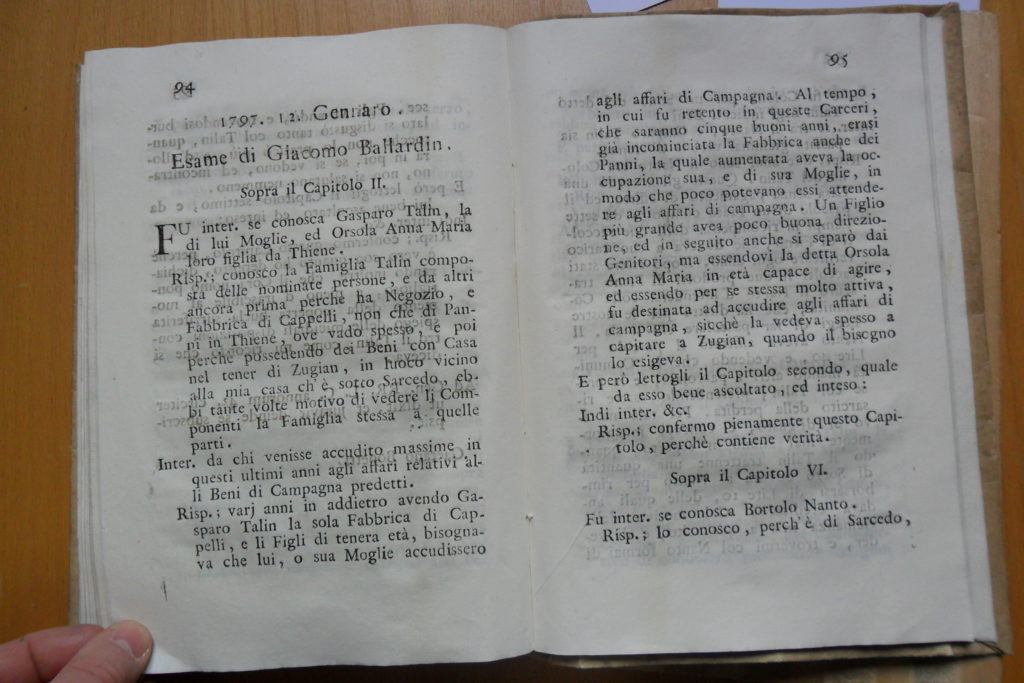 94
1797. 12. Gennaro.
Esame di Giacomo Ballardin.
Sopra il Capitolo II.
FU inter. se conosca Gasparo Talin, la
di lui Moglie, ed Orsola Anna Maria
loro figlia da Thiene.
Risp.; conosco la Famiglia Talin compo-
sta delle nominate persone, e da altri
ancora prima perchè ha Negozio, e
Fabbrica di Cappelli, non che di Pan-
ni in Thiene, ove vado spesso, e poi
perchè possedendo dei Beni con Casa
nel tener di Zugian, in luoco vicino
alla mia casa ch'è sotto Sarcedo, eb-
bi tante volte motivo di vedere li Com-
ponenti la Famiglia stessa a quelle
parti.
Inter. da chi venisse accudito massime in
questi ultimi anni agli affari relativi al-
li Beni di Campagna predetti.
Risp.; varj anni in addietro avendo Ga-
sparo Talin la sola Fabbrica di Cap-
pelli, e li Figli di tenera età, bisogna-
va che lui, o sua Moglie accudissero
95
agli affari di Campagna. Al tempo,
in cui fu retento in queste Carceri,
che saranno cinque buoni anni, erasi
già incominciata la Fabbrica anche dei
Panni, la quale aumentata aveva la oc-
cupazione sua, e di sua Moglie, in
modo che poco potevano essi attende-
re agli affari di campagna. Un Figlio
più grande avea poco buona direzio-
ne, ed in seguito anche si separò dai
Genitori, ma essendovi la detta Orsola
Anna Maria in età capace di agire,
ed essendo per se stessa molto attiva,
fu destinata ad accudire agli affari di
campagna, sicchè la vedeva spesso a
capitare a Zugian, quando il bisogno
lo esigeva.
E però lettogli il Capitolo secondo, quale
da esso bene ascoltato, ed inteso:
Indi inter. &c.
Risp.; confermo pienamente questo Capi-
tolo, perchè contiene verità.
Sopra il Capitolo VI.
Fu inter. se conosca Bortolo Nanto.
Risp.; lo conosco, perch'è di Sarcedo,